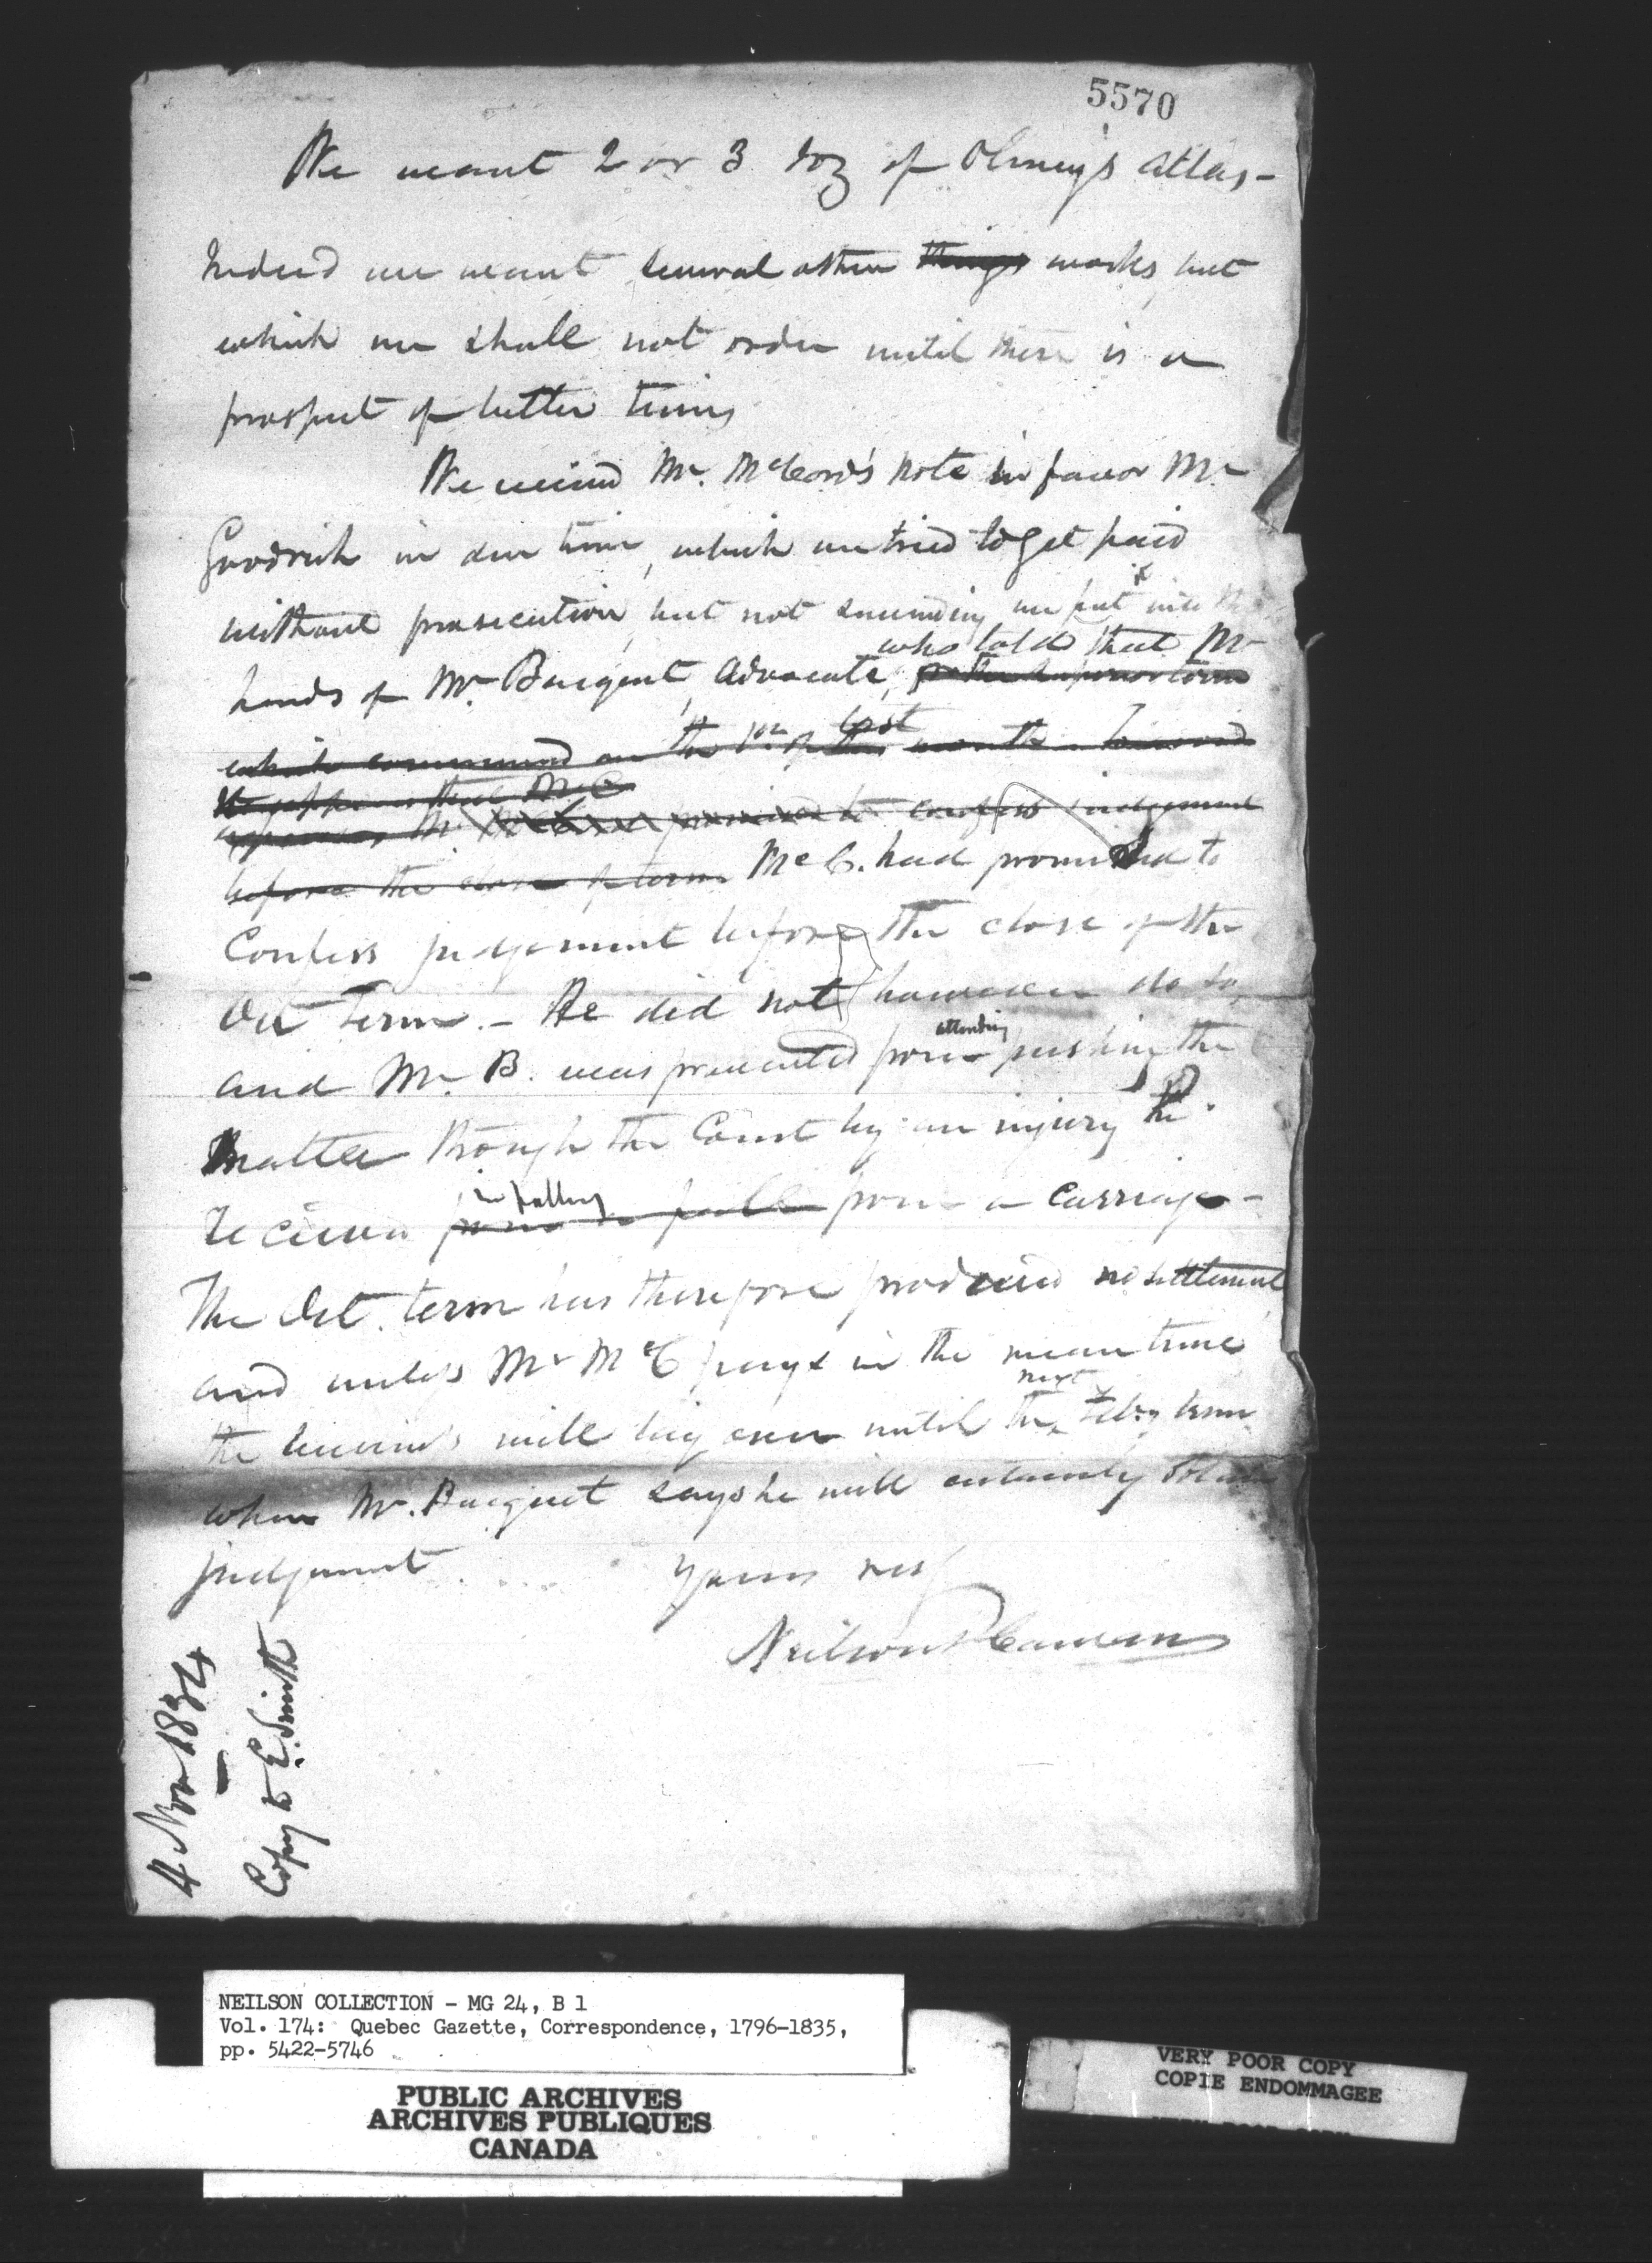 5570
We want 2 or 3 doz of Olney's Atlas -
Indeed we want several other things works, but
which we shall not order until there is a
prospect of better times
We received Mr. McCord's note in favor Mr
Goodrich in due time, which we tried to get paid
without prosecution, but not succeeding we put it into the
who told that Mr
hands of Mr Bacquet, Advocate,
last
which commenced on the 1st of this month
It appears that McC
appears, Mr promised to confess judgement
before the close of term McC. had promised to
Confess judgement before the close of the
Oct Term. - He did not however do so,
attending
and Mr. B. was prevented from pushing the
Matter through the Court by an injury he
in falling
received from a fall from a carriage -
The Oct. term has therefore produced no settlement
and unless Mr McC pays in the mean time
next
the business will lie over until the Feby term
when Mr. Bacquet says he will certainly obtain
judgment
Yours resy
Neilson & Cowan
4 Nov 1834
Copy to E. Smith
NEILSON COLLECTION - MG 24, B 1
Vol. 174: Quebec Gazette, Correspondence, 1796-1835,
pp. 5422-5746
PUBLIC ARCHIVES
ARCHIVES PUBLIQUES
CANADA
VERY POOR COPY
COPIE ENDOMMAGEE